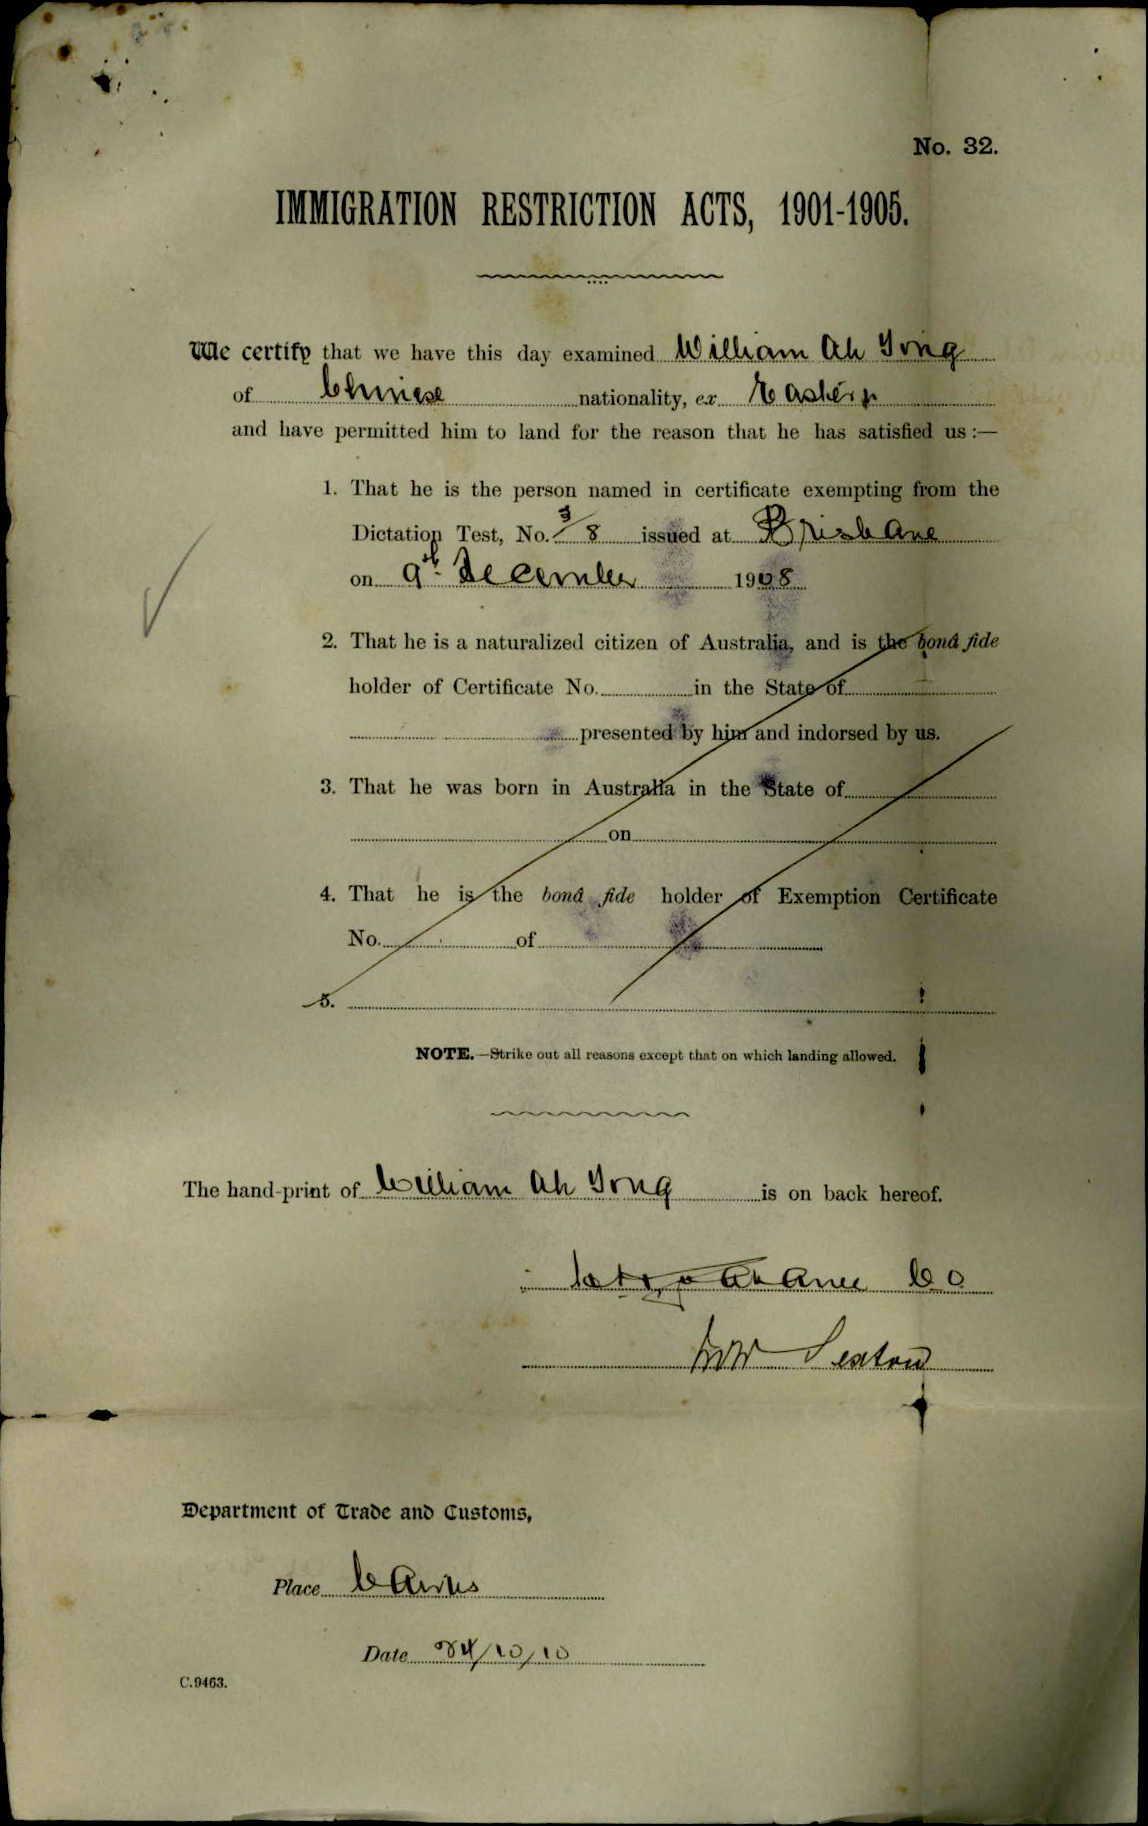 No. 32.
IMMIGRATION RESTRICTION ACTS, 1901-1905.
We certify that we have this day examined William Ah Tong
of Chinese nationality, ex Eastern
and have permitted him to land for the reason that he has satisfied us :—
1. That he is the person named in certificate exempting from the
Dictation Test, No. 3/8 issued at Brisbane
on 9th December 1908
2. That he is a naturalized citizen of Australia, and is the bonâ fide
holder of Certificate No. in the State of
presented by him and indorsed by us.
3. That he was born in Australia in the State of
on
4. That he is the bonâ fide holder of Exemption Certificate
No. of
5.
NOTE.—Strike out all reasons except that on which landing allowed.
The hand-print of William Ah Tong is on back hereof.
Sexton
Department of Trade and Customs,
Place Cairns
Date 24/10/10
C.9463.